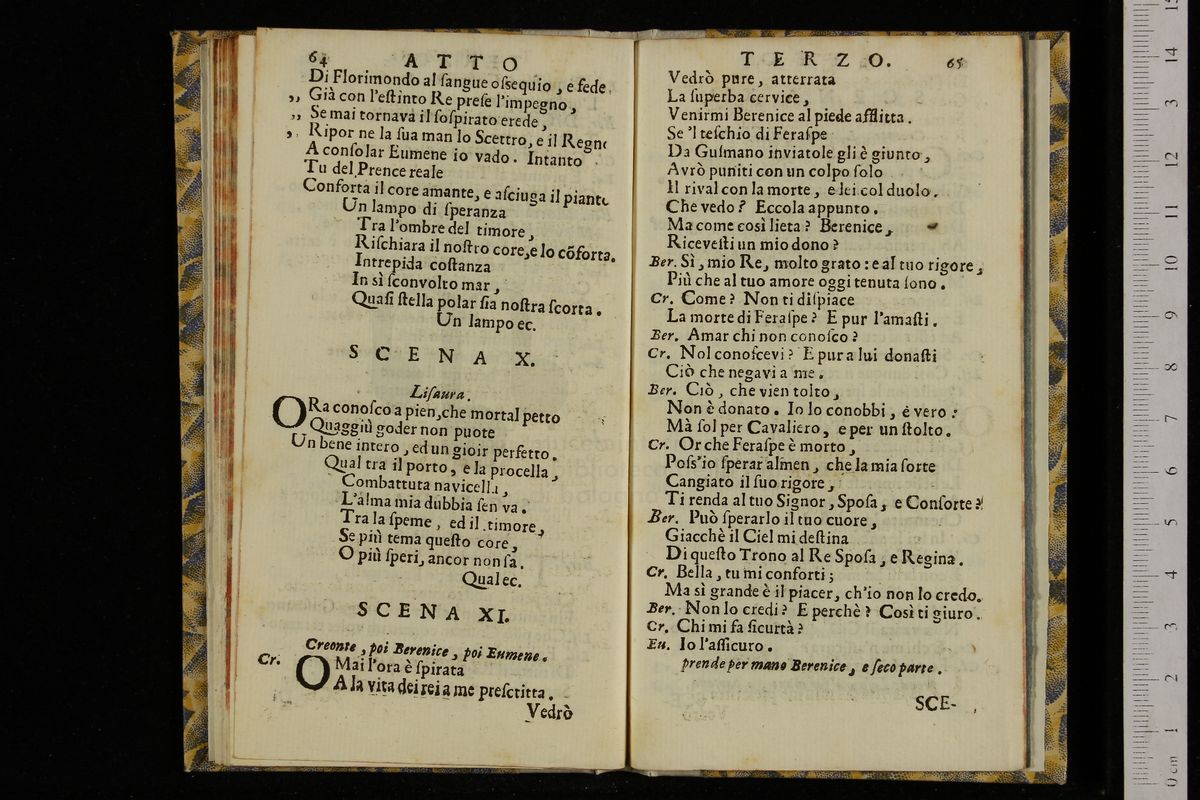 64 ATTO
Di Florimondo al ſangue oſsequio, e fede.
„ Già con l'eſtinto Re preſe l'impegno,
„ Se mai tornava il ſoſpirato erede,
„ Ripor ne la ſua man lo Scettro, e il Regno
A conſolar Eumene io vado. Intanto
Tu del Prence reale
Conforta il core amante, e aſciuga il pianto
Un lampo di ſperanza
Tra l'ombre del timore,
Riſchiara il noſtro core, e lo cõforta.
Intrepida coſtanza
In sì ſconvolto mar,
Quaſi ſtella polar ſia noſtra ſcorta.
Un lampo ec.
SCENA X.
Liſaura.
ORa conoſco a pien, che mortal petto
Quaggiù goder non puote
Un bene intero, ed un gioir perfetto.
Qual tra il porto, e la procella,
Combattuta navicella,
L'alma mia dubbia ſen va.
Tra la ſpeme, ed il timore,
Se più tema queſto core,
O più ſperi, ancor non ſa.
Qual ec.
SCENA XI.
Creonte, poi Berenice, poi Eumene.
Cr. OMai l'ora è ſpirata
A la vita dei rei a me preſcritta.
Vedrò
TERZO. 65
Vedrò pure, atterrata
La ſuperba cervice,
Venirmi Berenice al piede afflitta.
Se 'l teſchio di Feraſpe
Da Guſmano inviatole gli è giunto,
Avrò puniti con un colpo ſolo
Il rival con la morte, e lei col duolo.
Che vedo? Eccola appunto.
Ma come così lieta? Berenice,
Riceveſti un mio dono?
Ber. Sì, mio Re, molto grato: e al tuo rigore,
Più che al tuo amore oggi tenuta ſono.
Cr. Come? Non ti diſpiace
La morte di Feraſpe? E pur l'amaſti.
Ber. Amar chi non conoſco?
Cr. Nol conoſcevi? E pur a lui donaſti
Ciò che negavi a me.
Ber. Ciò, che vien tolto,
Non è donato. Io lo conobbi, è vero:
Mà ſol per Cavaliero, e per un ſtolto.
Cr. Or che Feraſpe è morto,
Poſs'io ſperar almen, che la mia ſorte
Cangiato il ſuo rigore,
Ti renda al tuo Signor, Spoſa, e Conſorte?
Ber. Può ſperarlo il tuo cuore,
Giacchè il Ciel mi deſtina
Di queſto Trono al Re Spoſa, e Regina.
Cr. Bella, tu mi conforti;
Ma sì grande è il piacer, ch'io non lo credo.
Ber. Non lo credi? E perchè? Così ti giuro.
Cr. Chi mi fa ſicurtà?
Eu. Io l'aſſicuro.
prende per mano Berenice, e ſeco parte.
SCE-
0 cm 1 2 3 4 5 6 7 8 9 10 11 12 3 14 15